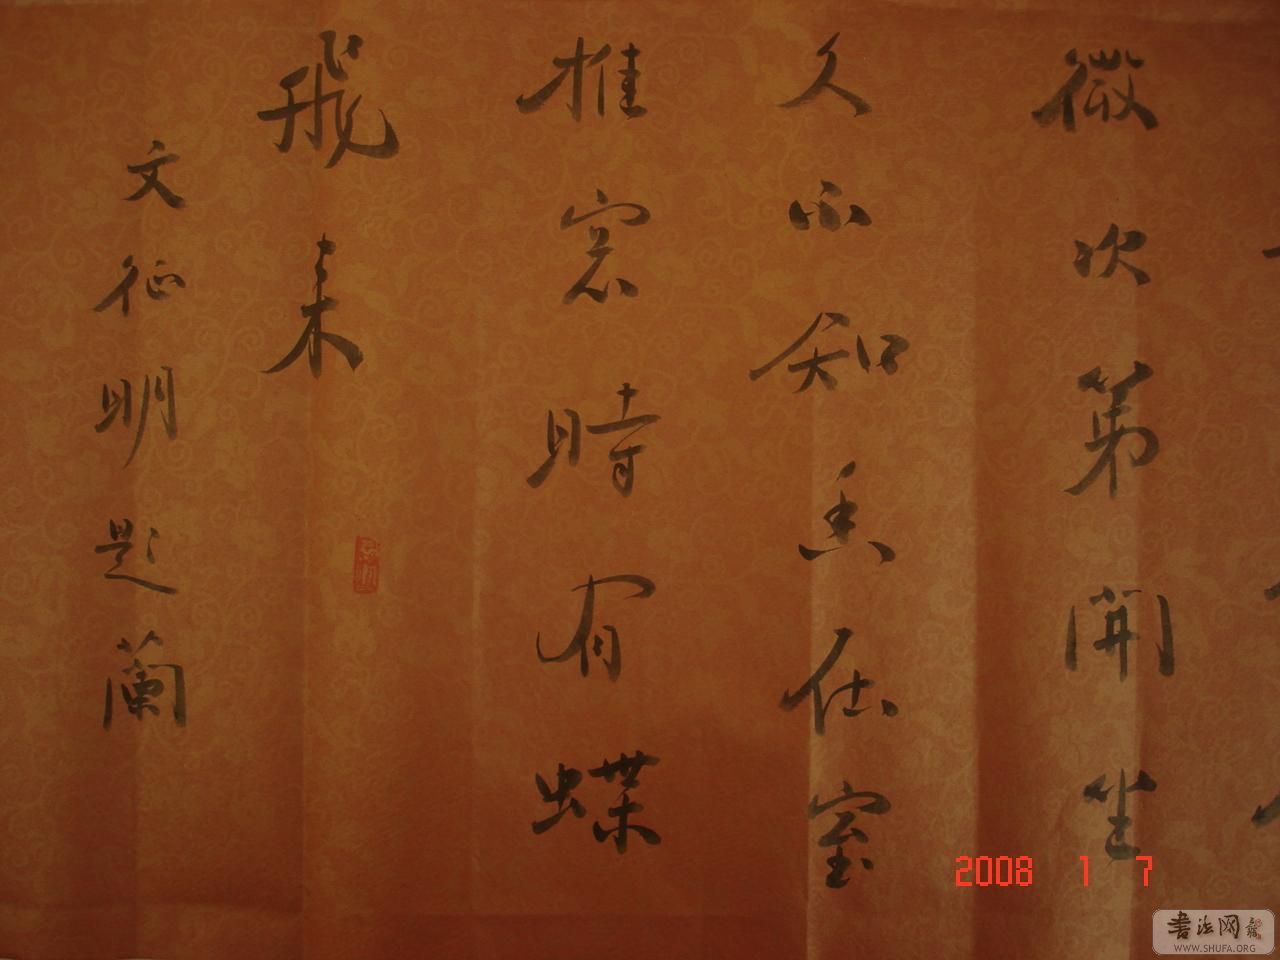 微次第開坐
久不知香在室
推窓時有蝶
飛来
文征明題蘭
2008 1 7
書法网
WWW.SHUFA.ORG